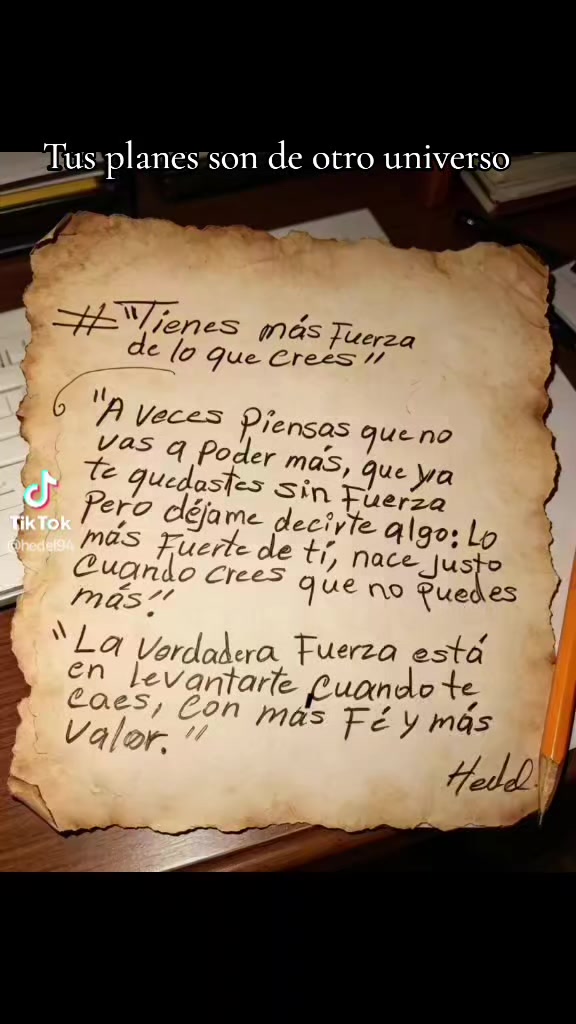 Tus planes son de otro universo
# "Tienes más Fuerza
de lo que crees"
"A veces Piensas que no
vas a poder más, que ya
te quedastes sin Fuerza
Pero déjame decirte algo: Lo
más Fuerte de tí, nace justo
Cuando crees que no puedes
más!"
"La Vordadera Fuerza está
en levantarte Cuando te
caes, Con más Fé y más
Valor."
Hedel.
TikTok
@hedel94